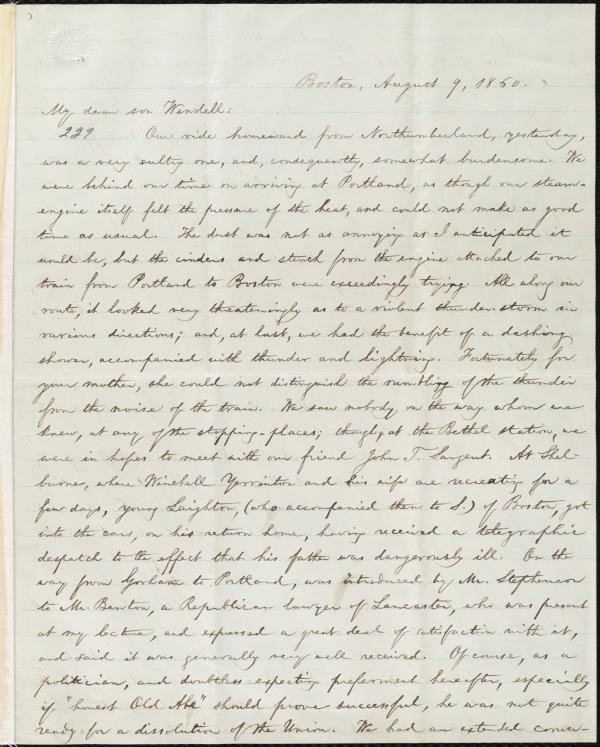 Boston, August 9, 1860.
My dear son Wendell:
229 Our ride homeward from Northumberland, yesterday,
was a very sultry one, and, consequently, somewhat burdensome. We
were behind our time on arriving at Portland, as though our steam-
engine itself felt the pressure of the heat, and could not make as good
time as usual. The dust was not as annoying as I anticipated it
would be, but the cinders and stench from the engine attached to our
train from Portland to Boston were exceedingly trying. All along our
route, it looked very threateningly as to a violent thunder-storm in
various directions; and, at last, we had the benefit of a dashing
shower, accompanied with thunder and lightning. Fortunately for
your mother, she could not distinguish the rumbling of the thunder
from the noise of the train. We saw nobody, on the way, whom we
knew, at any of the stopping-places; though, at the Bethel station, we
were in hopes to meet with our friend John T. Sargent. At Shel-
burne, where Winchell Yerrinton and his wife are recreating for a
few days, young Leighton, (who accompanied them to S.) of Boston, got
into the cars, on his return home, having received a telegraphic
despatch to the effect that his father was dangerously ill. On the
way from Gorham to Portland, was introduced by Mr. Stephenson
to Mr. Benton, a Republican lawyer of Lancaster, who was present
at my lecture, and expressed a great deal of satisfaction with it,
and said it was generally very well received. Of course, as a
politician, and doubtless expecting preferment hereafter, especially
if "honest Old Abe" should prove successful, he was not quite
ready for a dissolution of the Union. We had an extended conver-